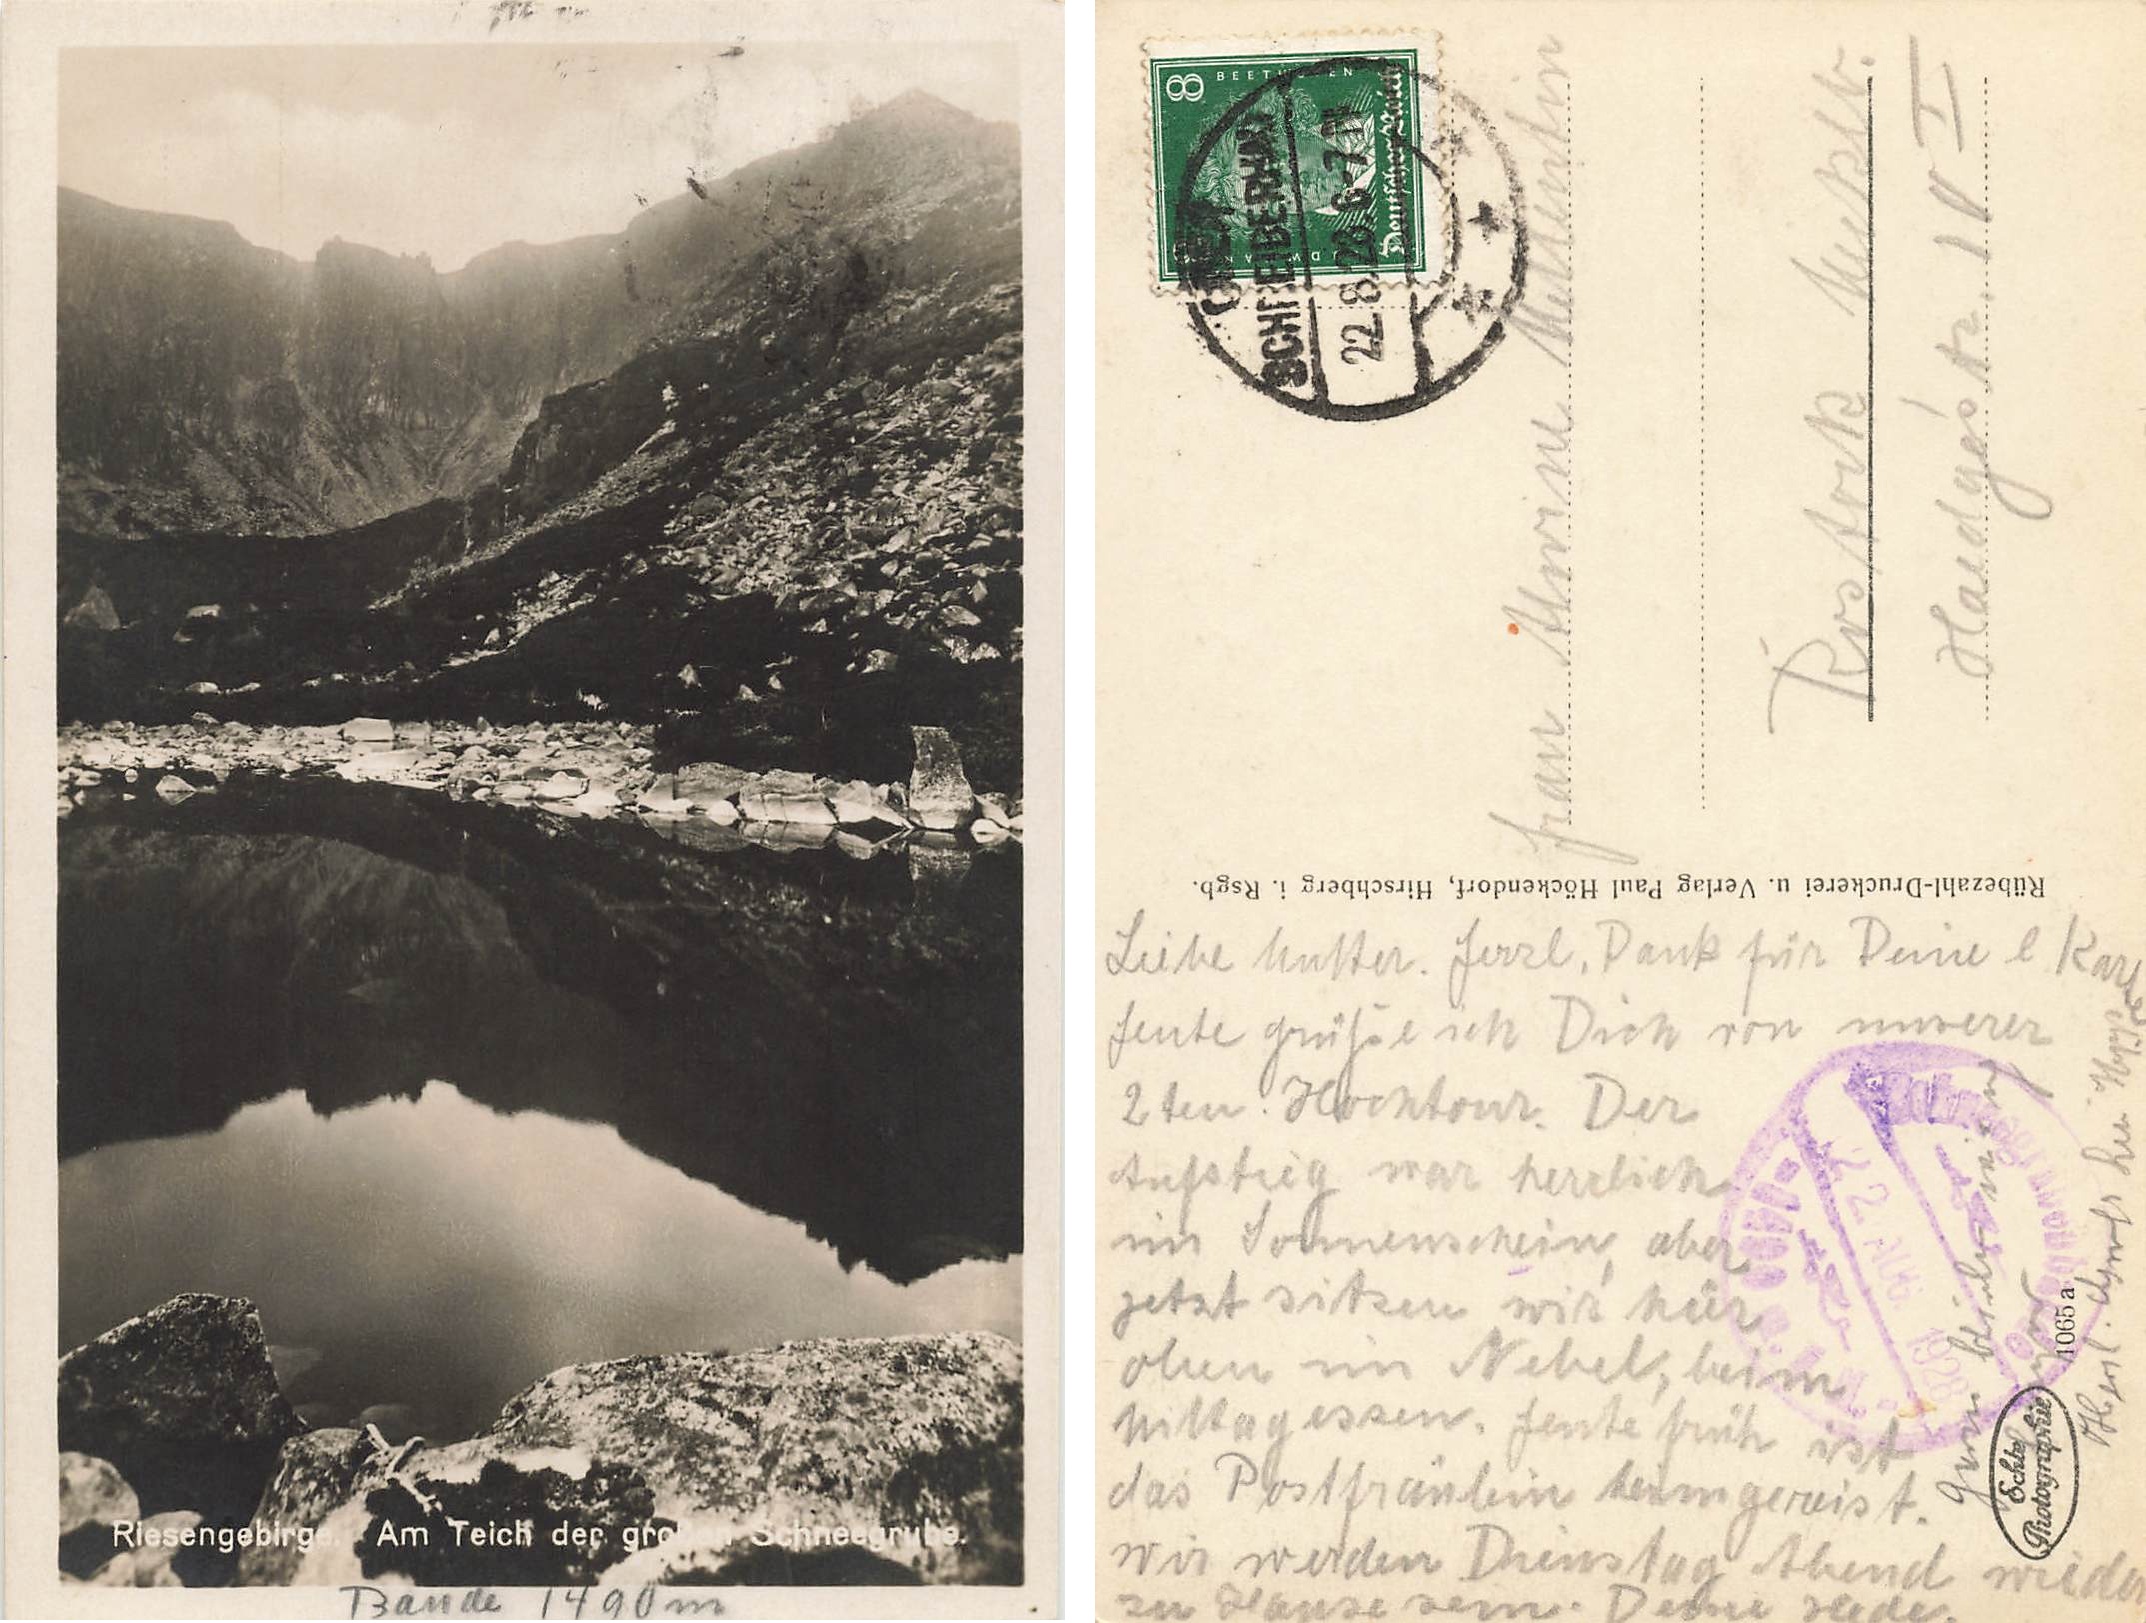 Riesengebirge. Am Teich der großen Schneegrube.
Baude 1490 m
8
BEETHOVEN
Deutsches Reich
OBER
SCHREIBERHAU
22.8.28.6-7N
Frau
Rostock Meckb.
IV I
Rübezahl-Druckerei u. Verlag Paul Höckendorf, Hirschberg i. Rsgb.
Liebe Mutter. Herzl. Dank für Deine l. Karte
Heute grüße ich Dich von unserer
2ten Hochtour. Der
Aufstieg war herrlich
im Sonnenschein, aber
jetzt sitzen wir hier
oben im Nebel, beim
Mittagessen. Heute früh ist
das Postfräulein heimgereist.
Wir werden Dienstag Abend wieder
zu Hause sein. Deine
22. AUG. 1928
1065 a
Echte
Photographie
Herzl.